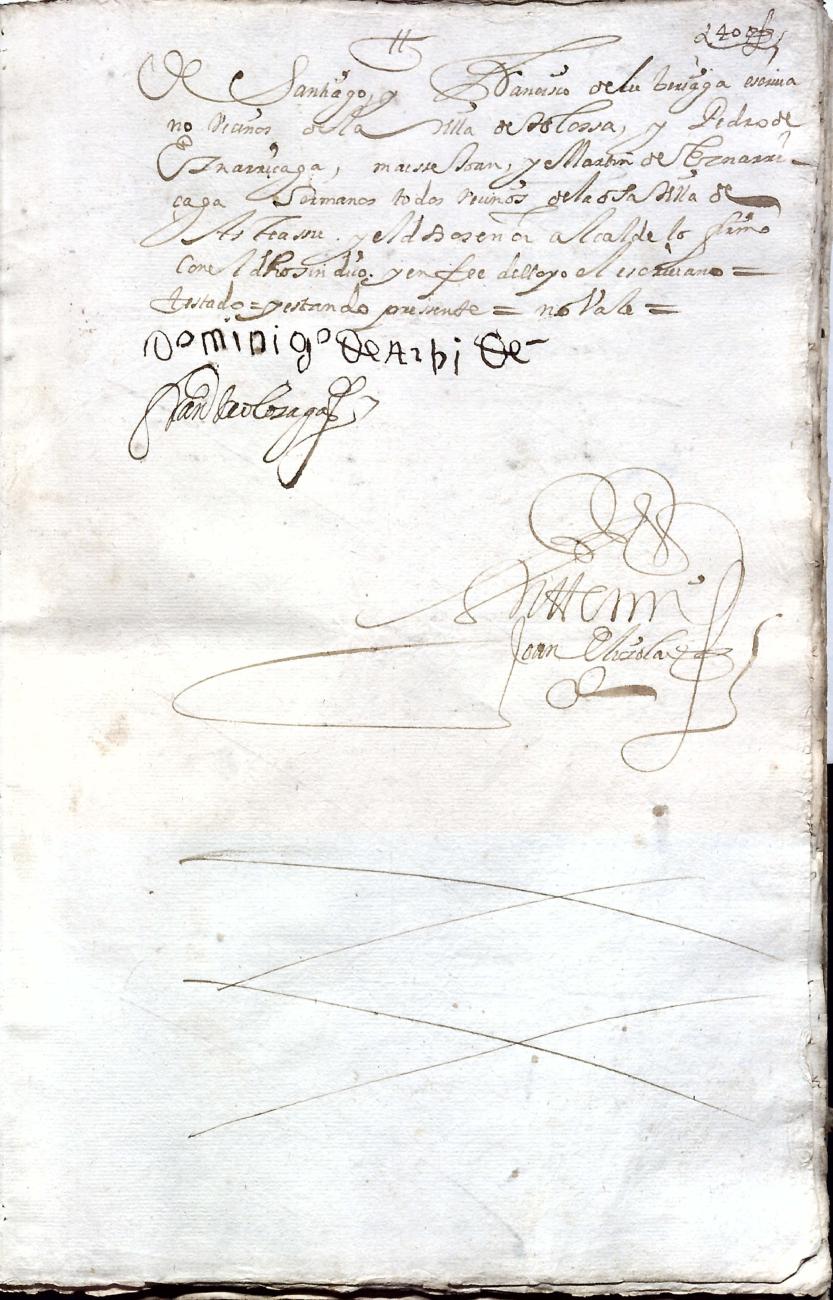 de Santiago, y Francisco de lu beriaga escriua
no vecinos de la Villa de tolossa, y Pedro de
Eznarriçaga, maesse Joan, y Martin de Eznarri-
çaga hermanos todos vecinos de la dha Villa de
Asteassu. y el dho señor alcalde lo firmo
Con el dho sindico. y en fee dello yo el escriuano =
testado = y estando presente = no Vala =
Dominigo de Arpide
Ante mi
Joan Elizola